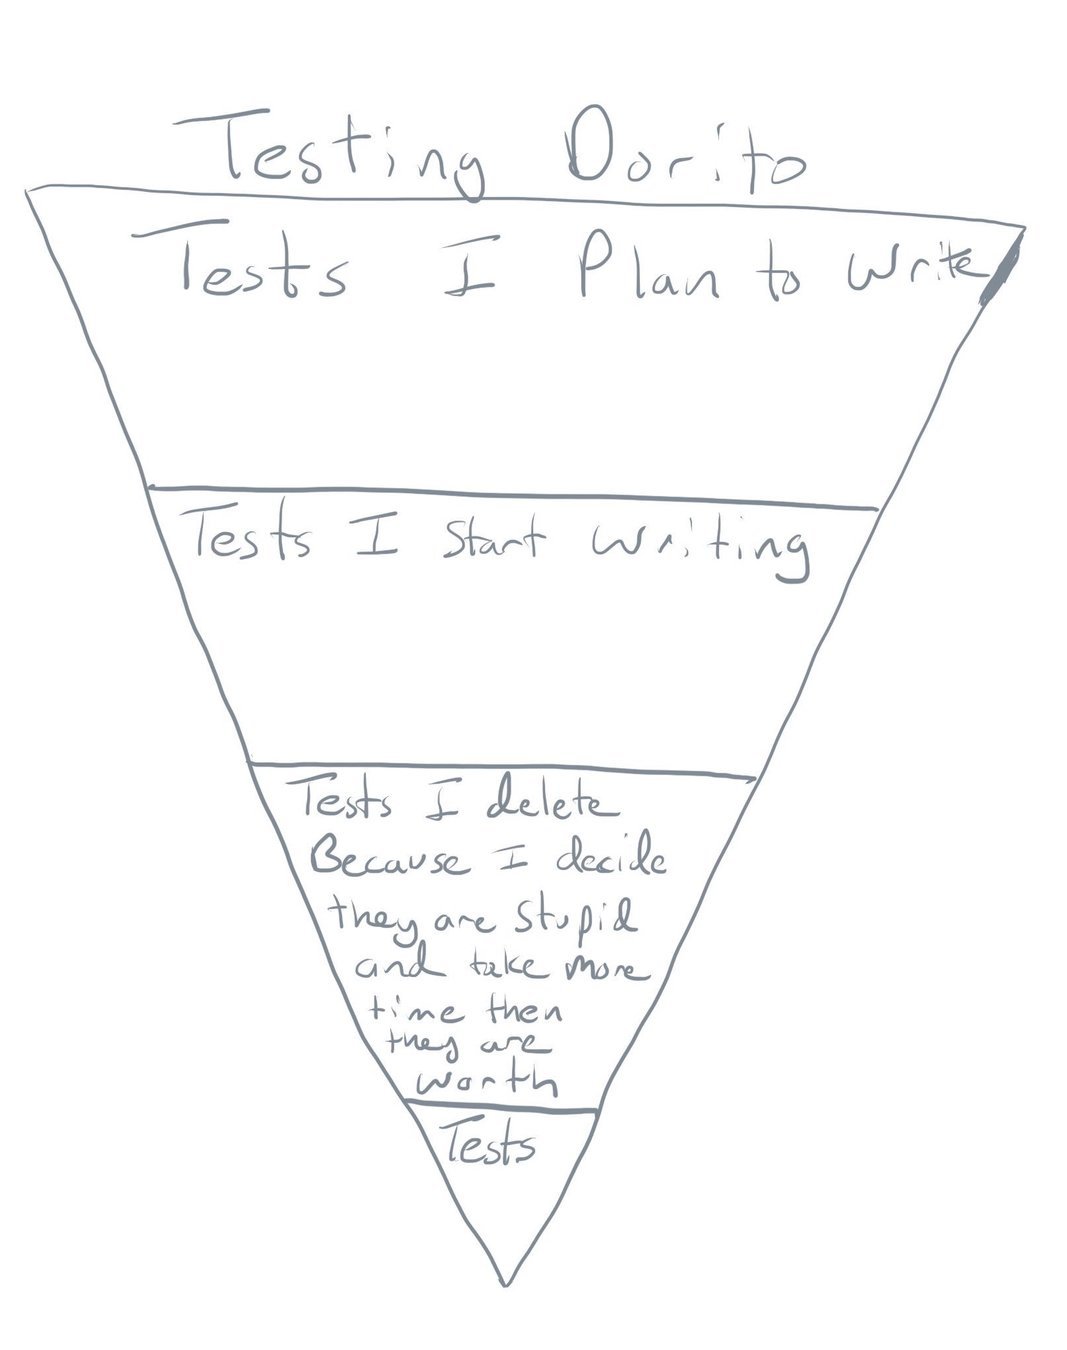 Testing Dorito
Tests I Plan to Write
Tests I Start Writing
Tests I delete
Because I decide
they are Stupid
and take more
time then
they are
worth
Tests